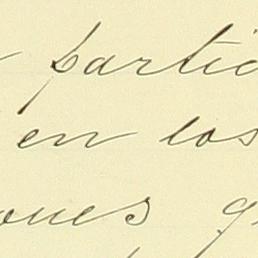 partic
en los
ones q